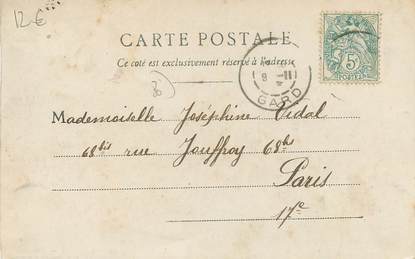 12-€
CARTE POSTALE
Ce côté est exclusivement réservé à l'adresse
GARD
5c
POSTES
Mademoiselle Joséphine Vidal
68bis rue Jouffroy 68bis
Paris
17e